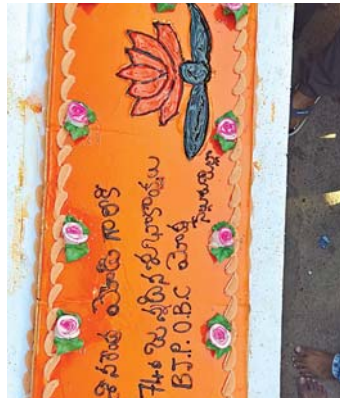 శ్రీ నరేంద్ర మోదీ గారికి
74వ జన్మదిన శుభాకాంక్షలు
B.J.P. O.B.C మోర్చా